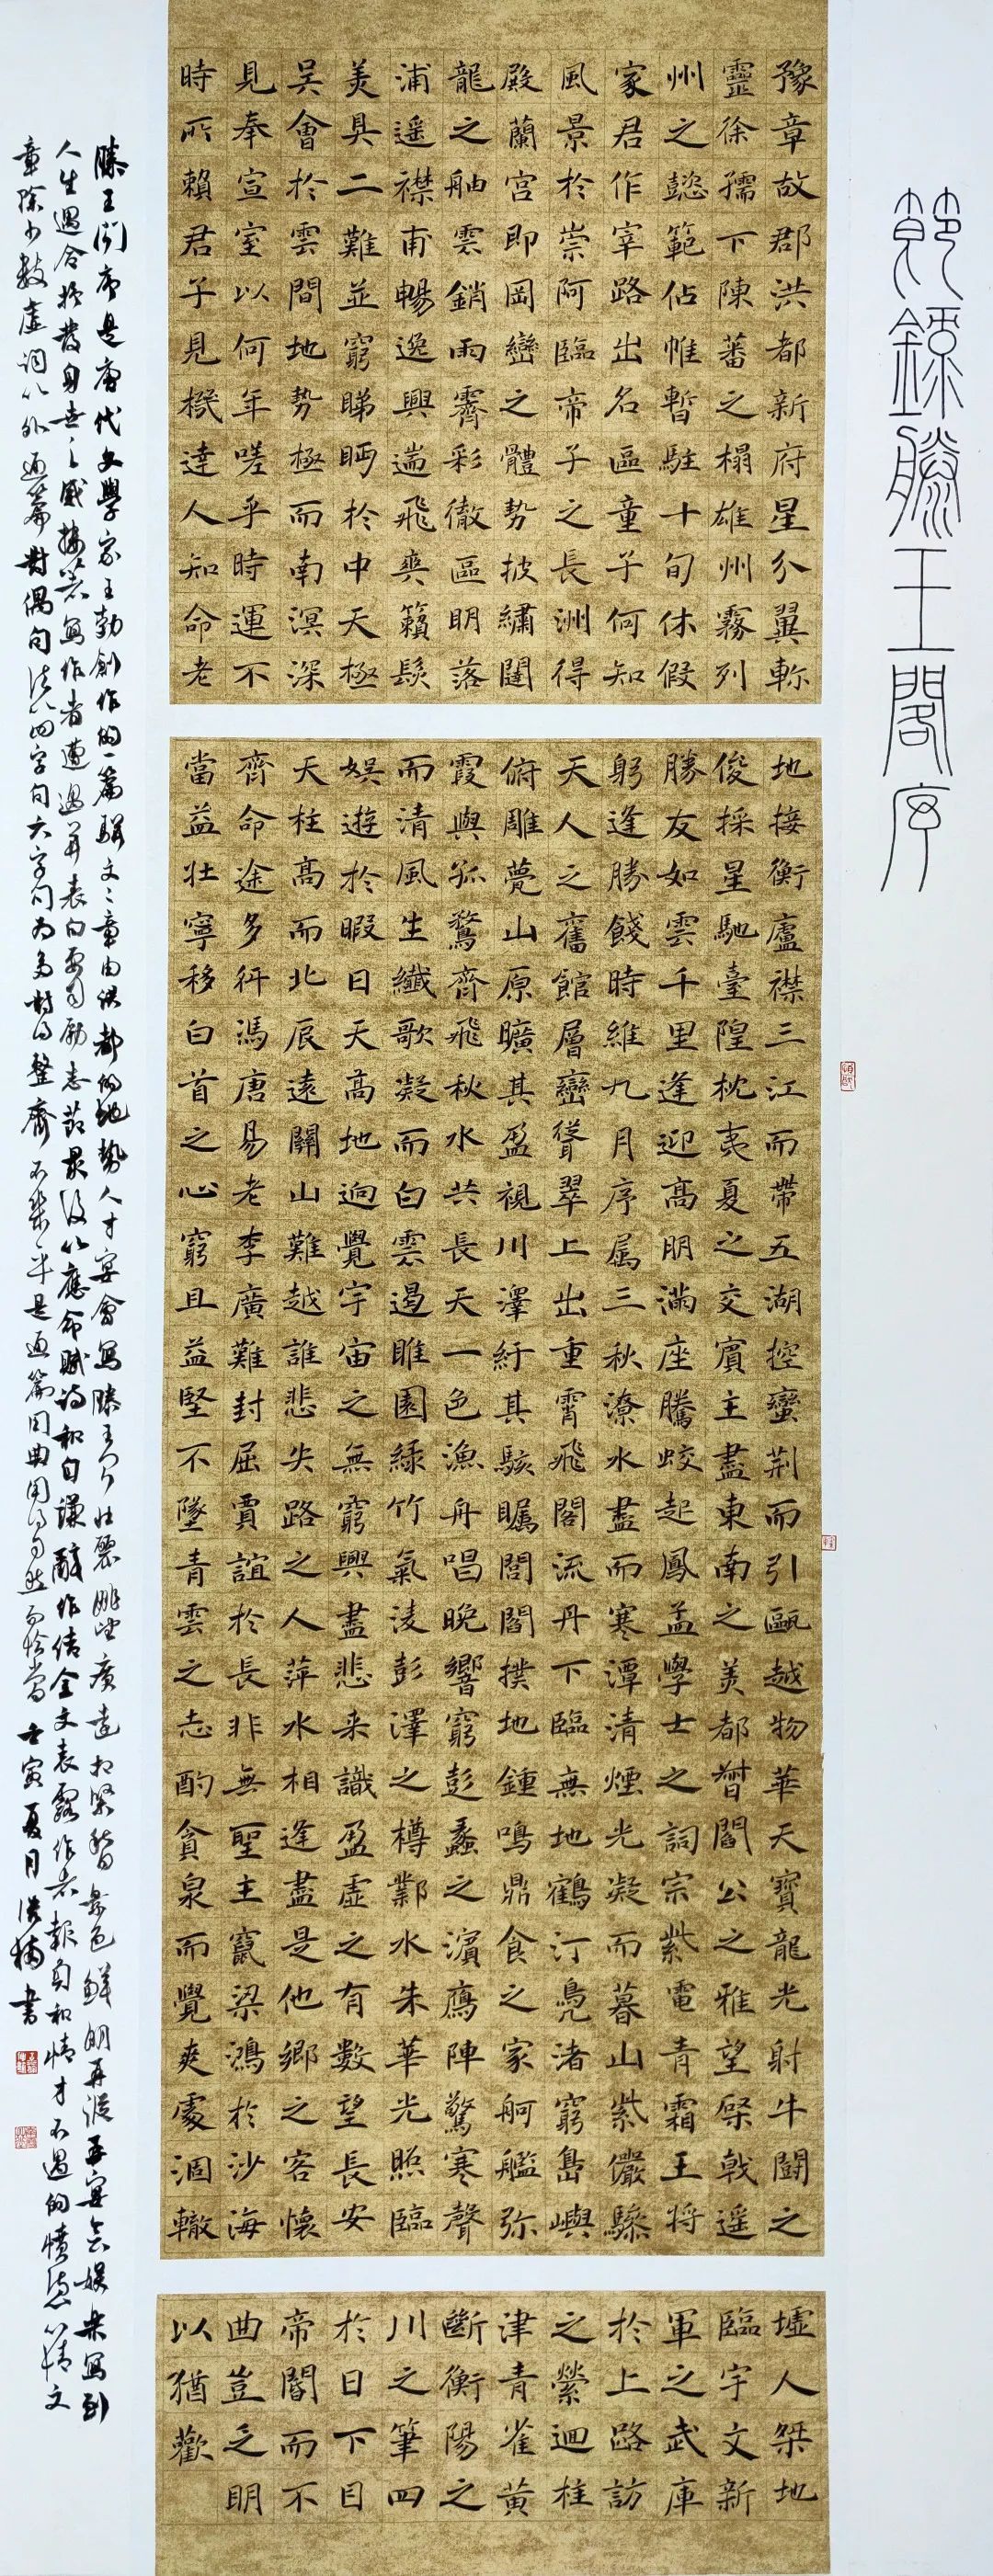 節錄滕王閣序
豫章故郡洪都新府星分翼軫地接衡廬襟三江而帶五湖控蠻荊而引甌越物華天寶龍光射牛鬪之墟人桀地
靈徐孺下陳蕃之榻雄州霧列俊採星馳臺隍枕夷夏之交賓主盡東南之美都督閻公之雅望棨戟遥臨宇文新
州之懿範佔帷暫駐十旬休假勝友如雲千里逢迎高朋滿座騰蛟起鳳孟學士之詞宗紫電青霜王將軍之武庫
家君作宰路出名區童子何知躬逢勝餞時維九月序属三秋潦水盡而寒潭清煙光凝而暮山紫儼驂於上路訪
風景於崇阿臨帝子之長洲得天人之舊館層巒聳翠上出重霄飛閣流丹下臨無地鶴汀鳧渚窮島嶼之縈迴桂
殿蘭宮即岡巒之體勢披繡闥俯雕甍山原曠其盈視川澤紆其駭矚閭閻撲地鍾鳴鼎食之家舸艦弥津青雀黄
龍之舳雲銷雨霽彩徹區明落霞與孤鶩齊飛秋水共長天一色漁舟唱晚響窮彭蠡之濱鴈陣驚寒聲斷衡陽之
浦遥襟甫暢逸興遄飛爽籟髮而清風生纖歌凝而白雲遏睢園綠竹氣淩彭澤之樽鄴水朱華光照臨川之筆四
美具二難並窮睇眄於中天極娱遊於暇日天高地迥覺宇宙之無窮興盡悲来識盈虛之有數望長安於日下目
吴會於雲間地勢極而南溟深天柱高而北辰遠關山難越誰悲失路之人萍水相逢盡是他鄉之客懷帝閽而不
見奉宣室以何年嗟乎時運不齊命途多舛馮唐易老李廣難封屈賈誼於長非無聖主竄梁鴻於沙海曲豈乏明
時所賴君子見機達人知命老當益壯寧移白首之心窮且益堅不墜青雲之志酌貪泉而覺爽處涸轍以猶歡
滕王閣序是唐代文學家王勃創作的一篇駢文文章由洪都的地勢人才宴會寫滕王閣壯麗眺望廣遠扣緊秋日景色鮮明再從再宴會娱樂寫到
人生遇合抒發身世之感接著寫作者遭遇并表白要自勵志節最後以應命賦詩和自謙辭作結全文表露作者報負和懷才不遇的憤懣心情文
章除少數虛詞以外通篇對偶句法以四字句六字句為多對得整齊是通篇用典用得自然而恰當 壬寅夏月洪楠書